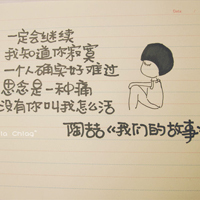 一定会继续
我知道你寂寞
一个人确实好难过
思念是一种痛
没有你叫我怎么活
陶喆《我们的故事》